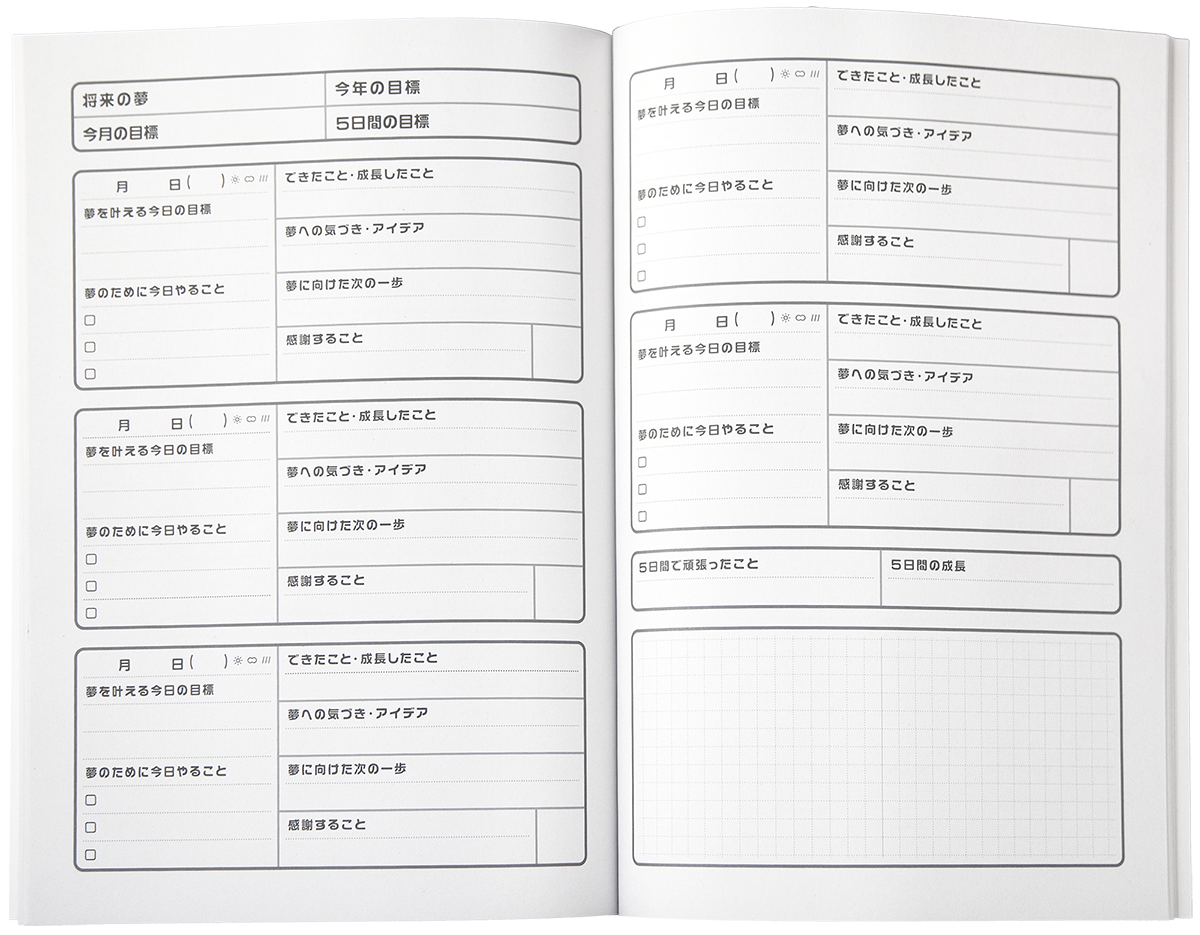 将来の夢 今年の目標
今月の目標 5日間の目標
月 日( )
夢を叶える今日の目標
夢のために今日やること
できたこと・成長したこと
夢への気づき・アイデア
夢に向けた次の一歩
感謝すること
月 日( )
夢を叶える今日の目標
夢のために今日やること
できたこと・成長したこと
夢への気づき・アイデア
夢に向けた次の一歩
感謝すること
月 日( )
夢を叶える今日の目標
夢のために今日やること
できたこと・成長したこと
夢への気づき・アイデア
夢に向けた次の一歩
感謝すること
月 日( )
夢を叶える今日の目標
夢のために今日やること
できたこと・成長したこと
夢への気づき・アイデア
夢に向けた次の一歩
感謝すること
月 日( )
夢を叶える今日の目標
夢のために今日やること
できたこと・成長したこと
夢への気づき・アイデア
夢に向けた次の一歩
感謝すること
5日間で頑張ったこと 5日間の成長